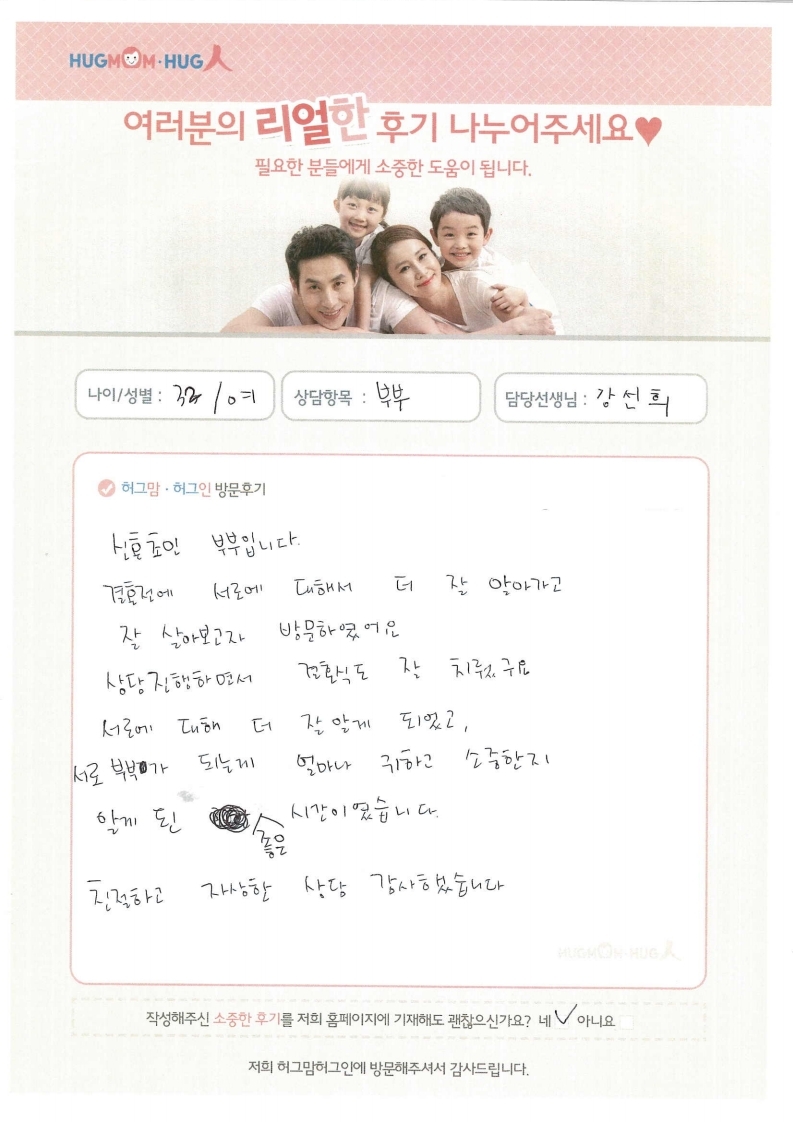 HUGMOM·HUG人
여러분의 리얼한 후기 나누어주세요♥
필요한 분들에게 소중한 도움이 됩니다.
나이/성별 : 32 / 여 상담항목 : 부부 담당선생님 : 강선희
허그맘·허그인 방문후기
신혼초인 부부입니다.
결혼전에 서로에 대해서 더 잘 알아가고
잘 살아보고자 방문하였어요
상담진행하면서 결혼식도 잘 치뤘구요
서로에 대해 더 잘 알게 되었고,
서로 부부가 되는게 얼마나 귀하고 소중한지
알게 된 좋은 시간이였습니다.
친절하고 자상한 상담 감사했습니다
HUGMOM·HUG人
작성해주신 소중한 후기를 저희 홈페이지에 기재해도 괜찮으신가요? 네 ✓ 아니요
저희 허그맘허그인에 방문해주셔서 감사드립니다.